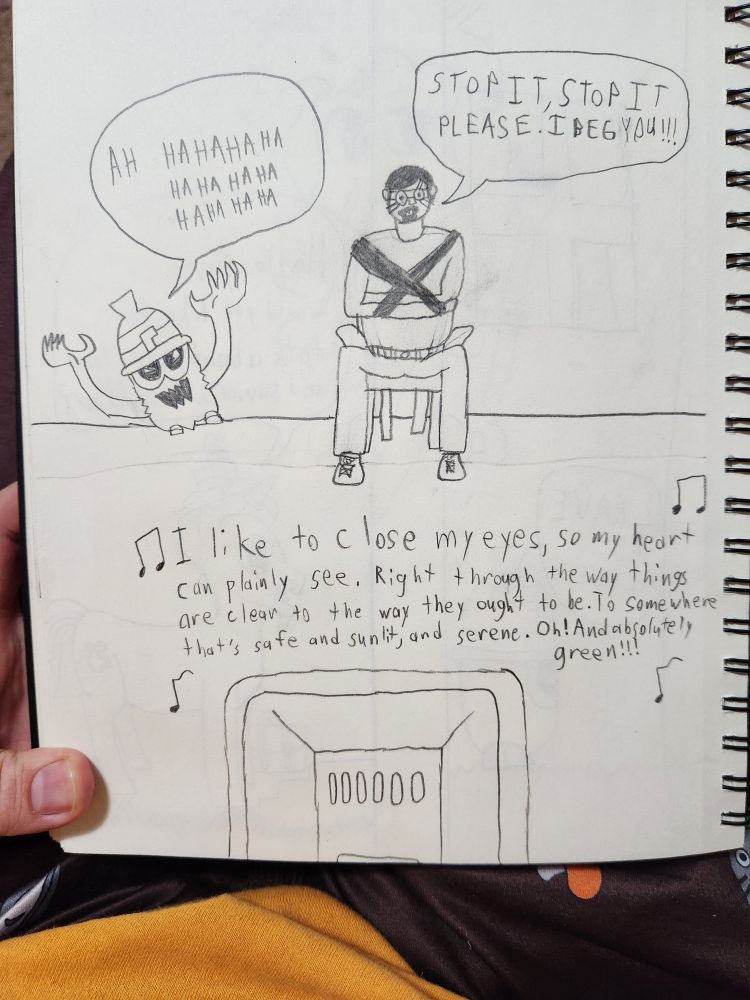 STOP IT, STOP IT
PLEASE. I BEG YOU!!!
AH HAHAHAHA
HAHA HAHA
HAHA HAHA
I like to close my eyes, so my heart
can plainly see. Right through the way things
are clear to the way they ought to be. To somewhere
that's safe and sunlit, and serene. Oh! And absolutely
green!!!